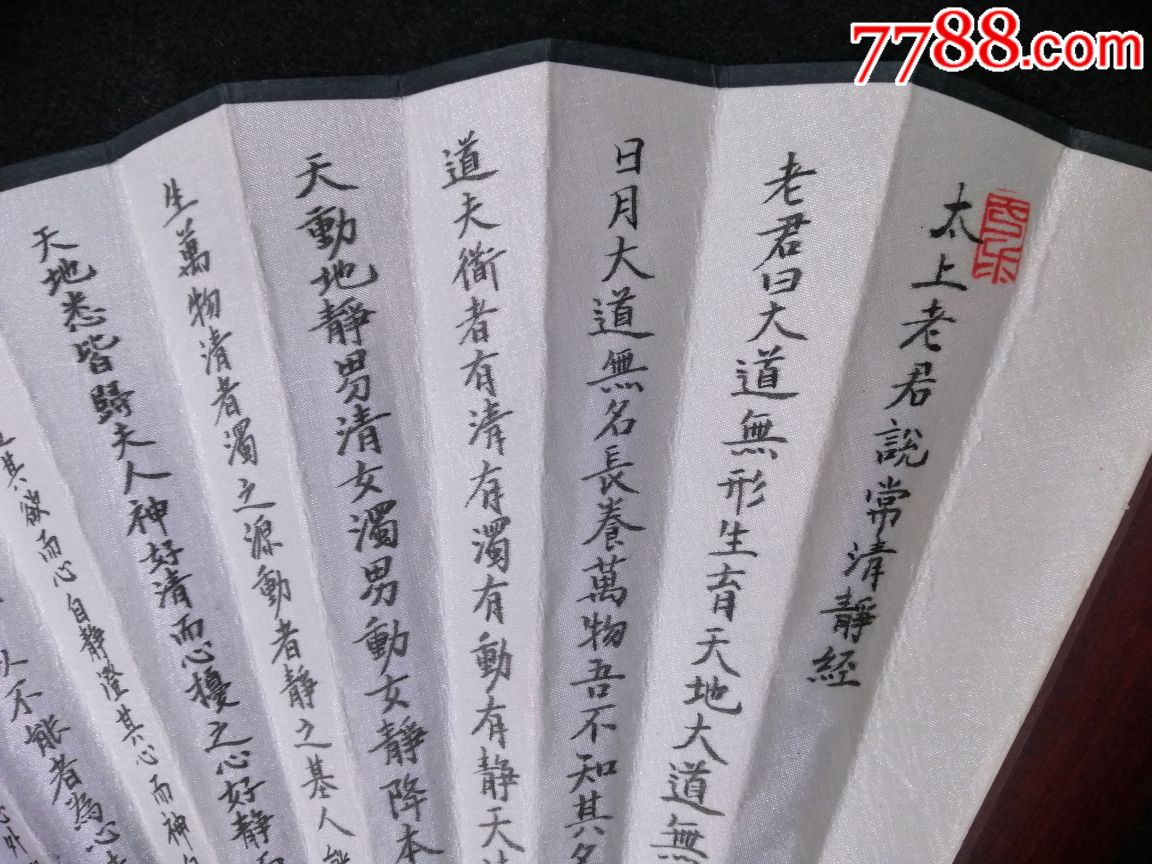 7788.com
太上老君說常清靜經
老君曰大道無形生育天地大道無
日月大道無名長養萬物吾不知其名
道夫衜者有清有濁有動有静天
天動地靜男清女濁男動女靜降本
生萬物清者濁之源動者靜之基人能
天地悉皆歸夫人神好清而心擾之心好靜而
其欲而心自静澄其心而神自
不能者為心